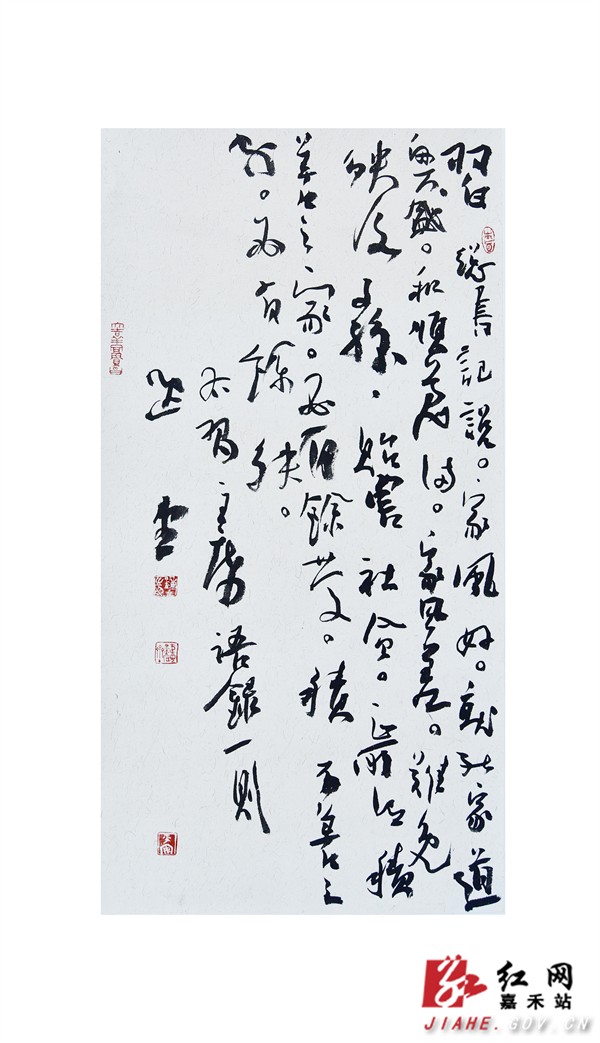 習總書記說。家風好。就能家道
興盛。和順美滿。家風差。難免
殃及子孫、貽害社會。正所謂積
善之家。必有餘慶。積不善之
家。必有餘殃。
右習主席語錄一則
红网
嘉禾站
JIAHE.GOV.CN